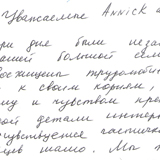 Уважаемые Annick и
три дня были неза
нашей большой сем
Восхищена трудолюби
к своим корням,
му и чувством пре
ой детали интер
чувствуется частичк
ила мало. Мы п